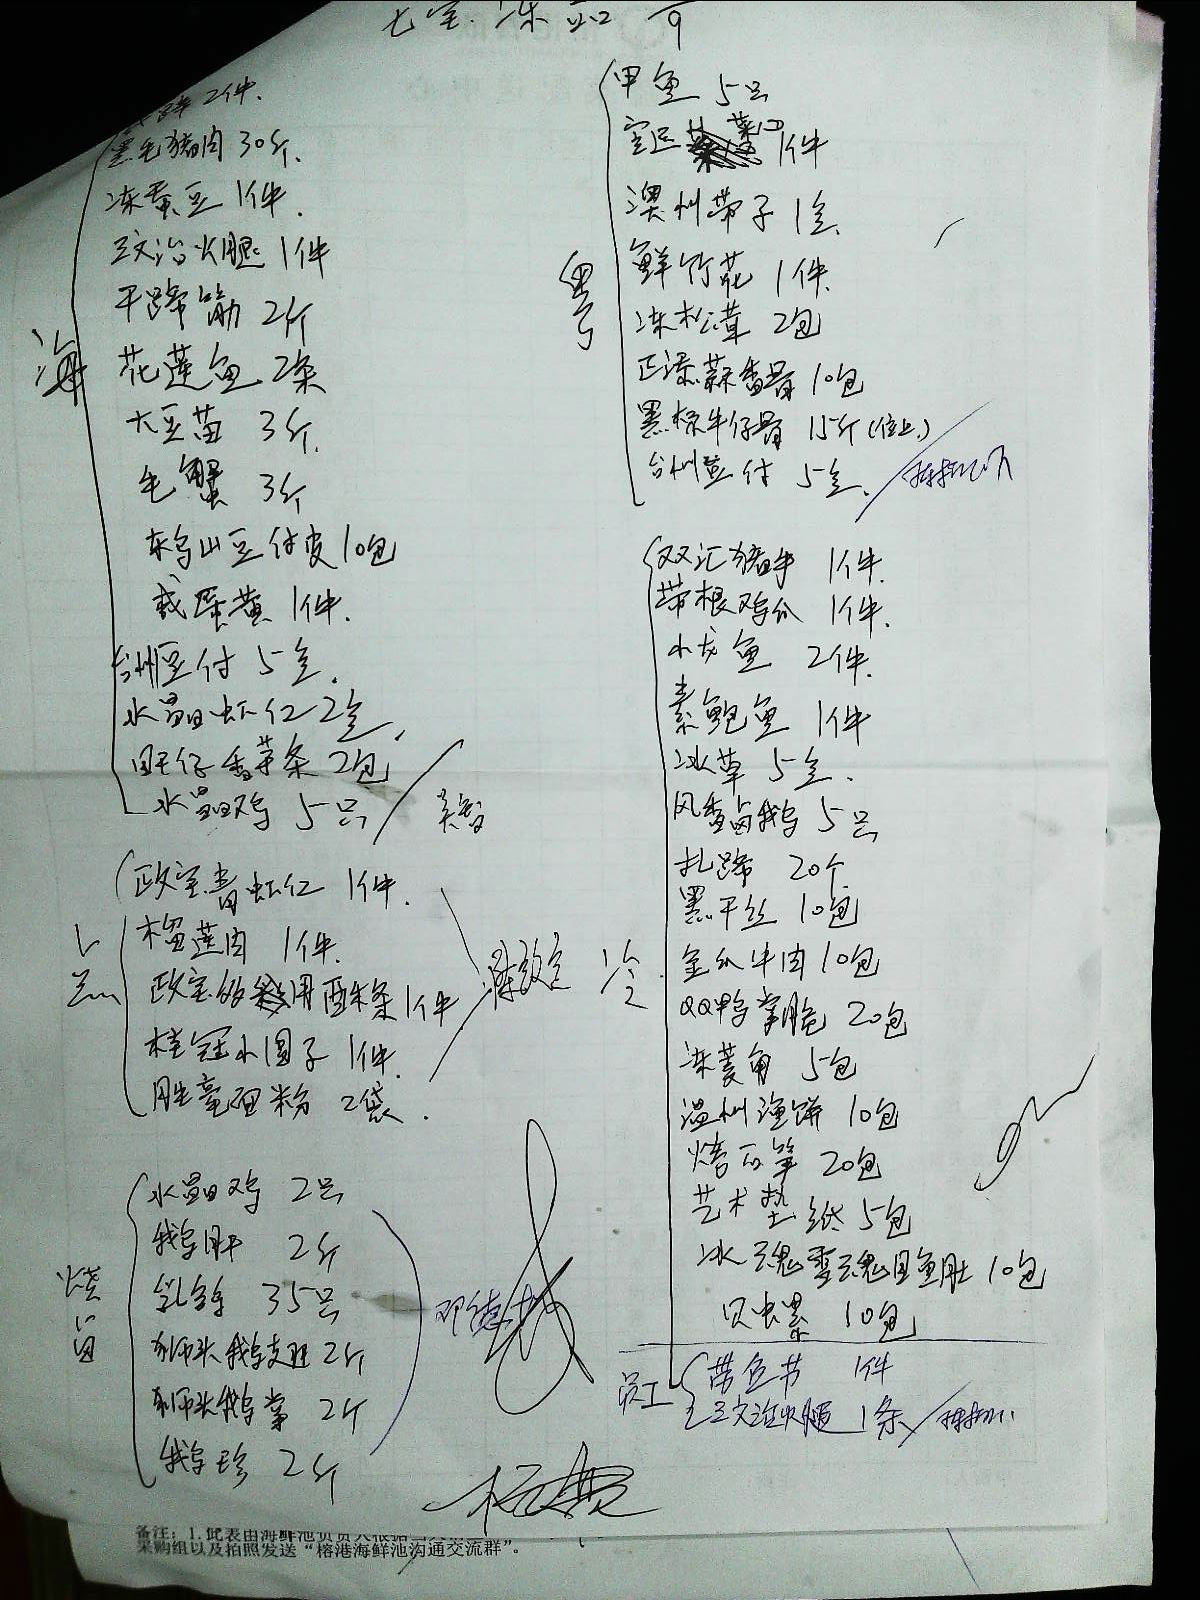 2件.
黑毛猪肉 30斤.
冻蚕豆 1件.
政治火腿 1件
干蹄筋 2斤
花莲鱼 2条
大豆苗 3斤.
毛蟹 3斤
豆付皮 10包
咸蛋黄 1件.
台州豆付 5盒.
水晶虾仁 2盒.
旺仔香芋条 2包
水晶鸡 5只
海
政宝青虾仁 1件.
榴莲肉 1件.
1件
桂冠小圆子 1件.
2袋.
点
水晶鸡 2只
鹅肝 2斤
乳鸽 35只
狮头鹅 2斤
狮头鹅掌 2斤
鹅珍 2斤
烧
甲鱼 5只
1件
澳州带子 1盒.
鲜竹花 1件.
冻松茸 2包
蒜香骨 10包
黑椒牛仔骨 15斤(位上)
台州豆付 5盒.
粤
双汇猪手 1件.
带根鸡爪 1件.
小龙鱼 2件.
素鲍鱼 1件
冰草 5盒.
风香卤鹅 5只
扎蹄 20个
黑干丝 10包
金瓜牛肉 10包
QQ鸭掌脆 20包
冻菱角 5包
温州渔饼 10包
20包
艺术垫纸 5包
10包
贝虫累 10包
冷
员工
带鱼节 1件
三文治火腿 1条
备注：1.此表由海鲜池负责人根据
采购组以及拍照发送“榕港海鲜池沟通交流群”。